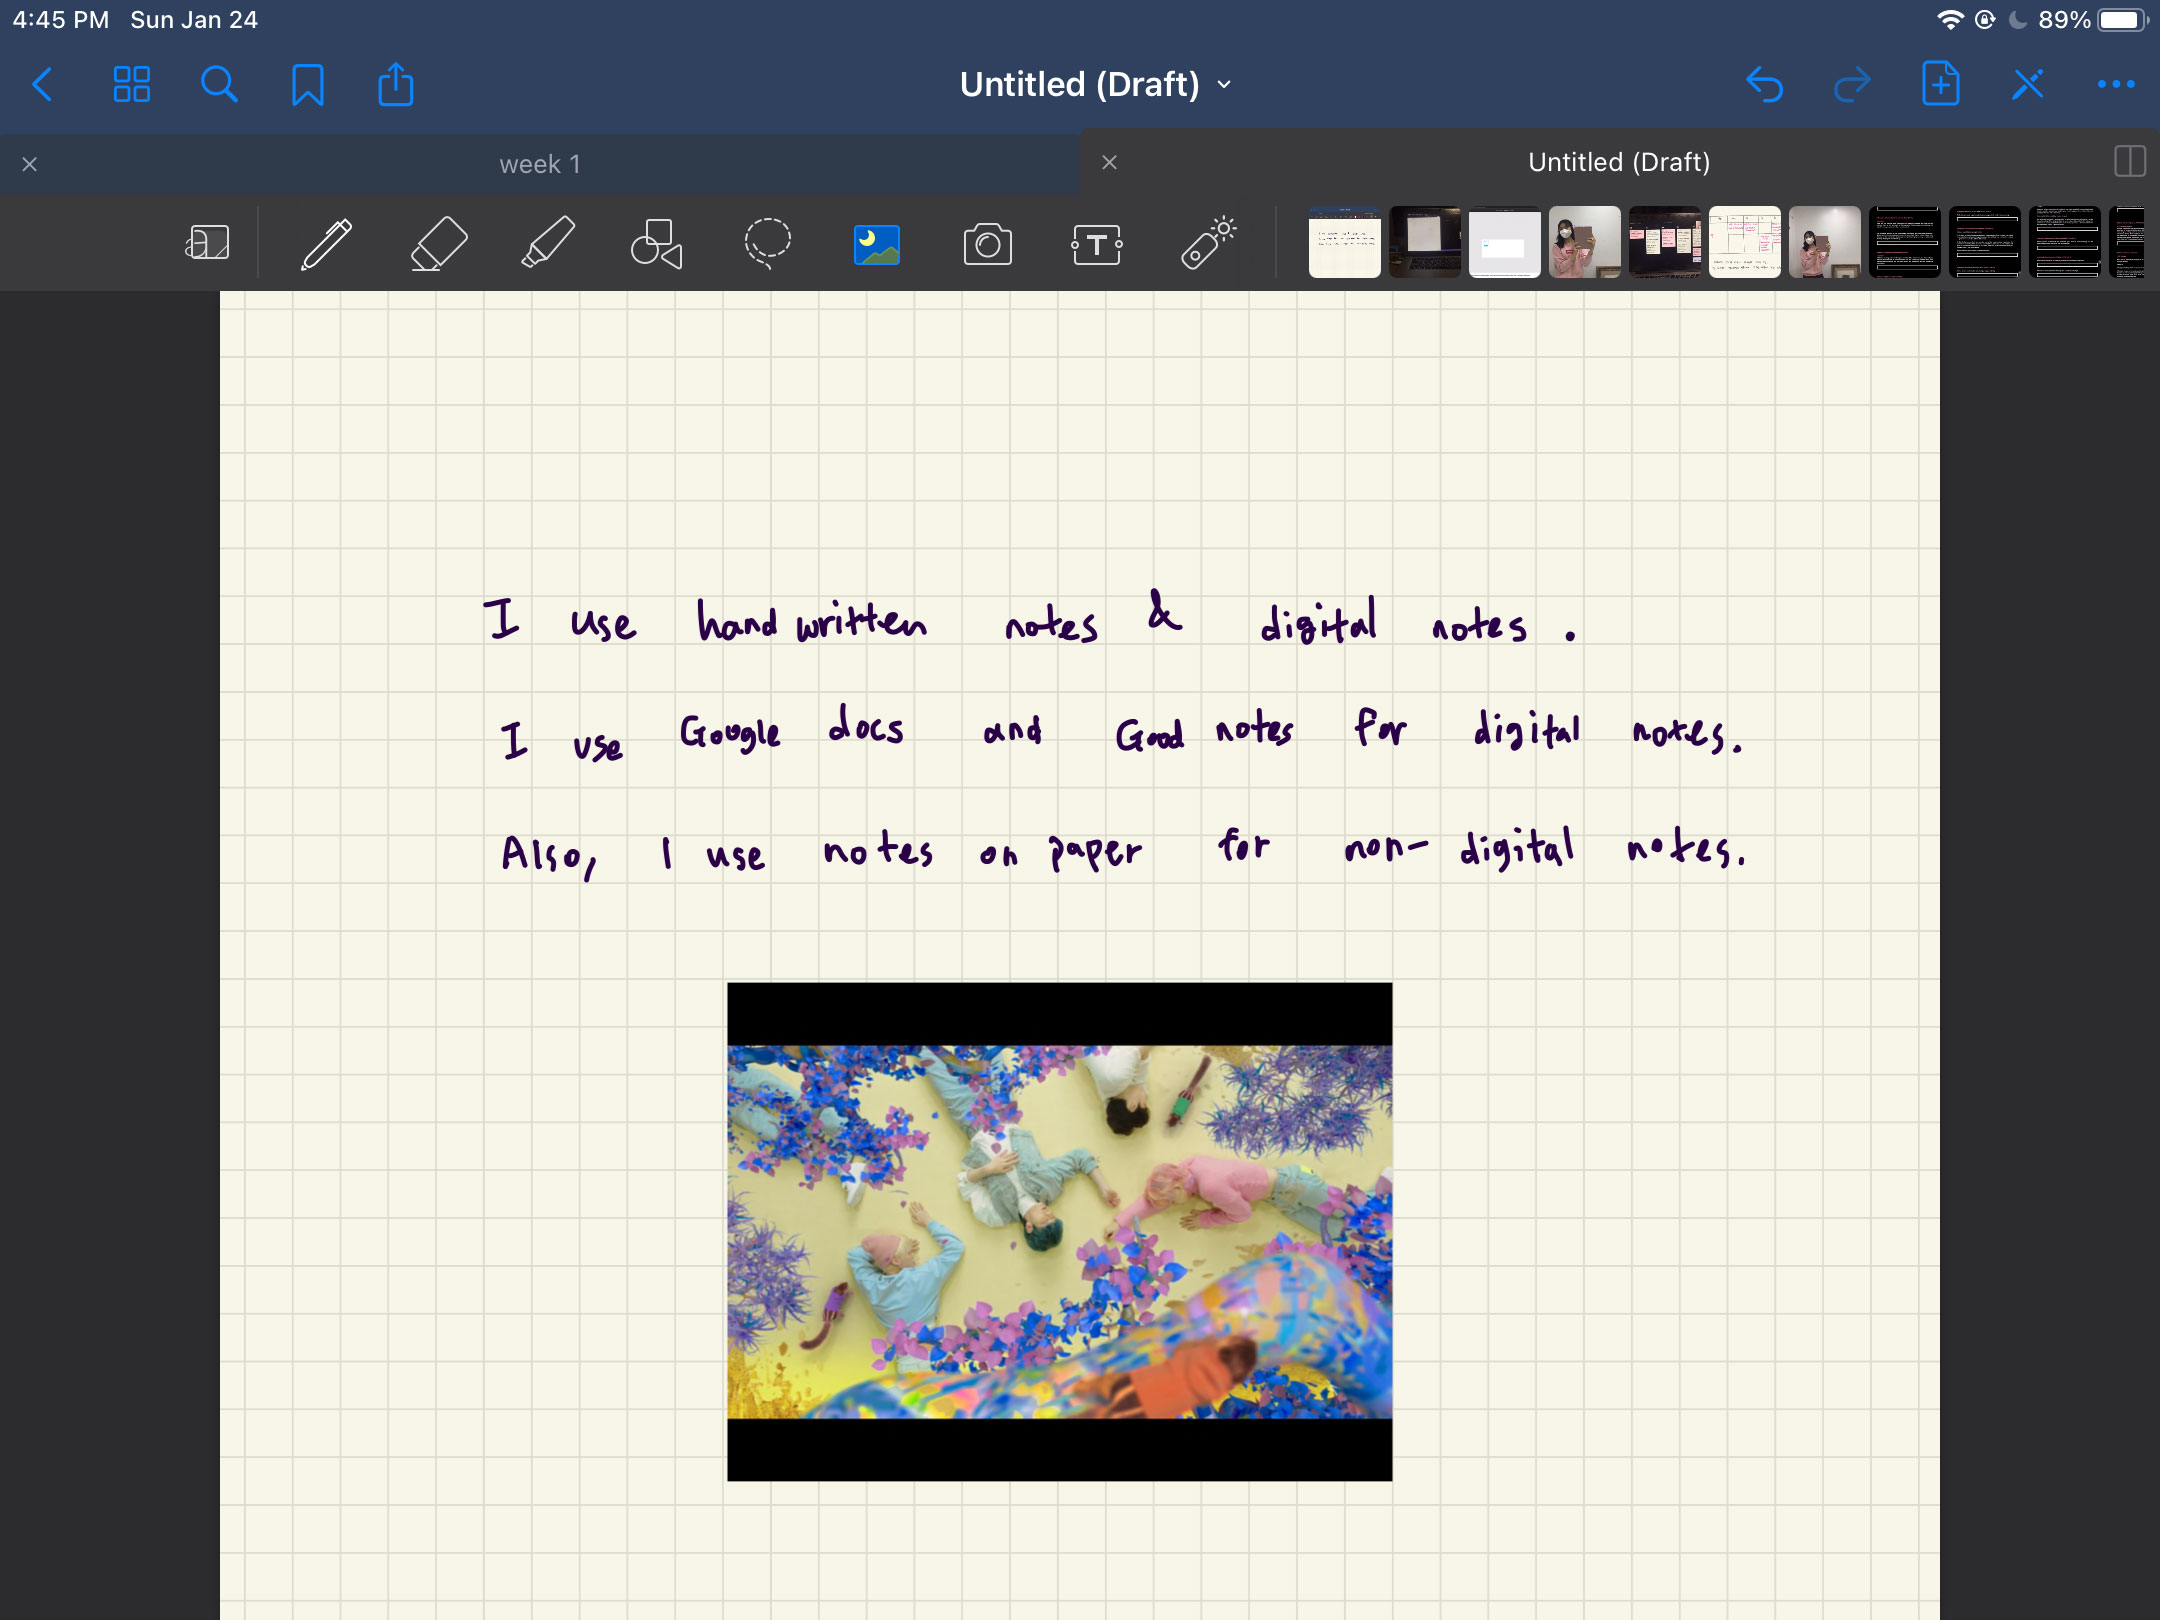 4:45 PM Sun Jan 24 89%
Untitled (Draft)
week 1 Untitled (Draft)
T
I use hand written notes & digital notes.
I use Google docs and Good notes for digital notes.
Also, I use notes on paper for non-digital notes.